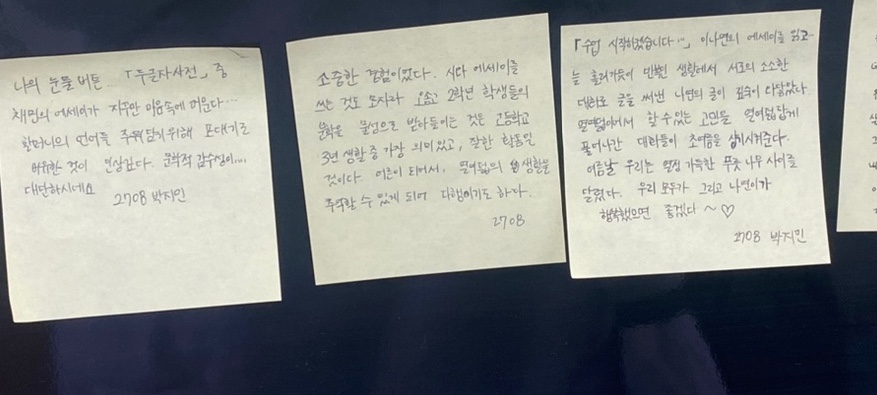 나의 눈물 버튼... 「두글자사전」 중
채민의 에세이가 자꾸만 마음속에 머문다...
할머니의 언어를 주워담기 위해 포대기로
비유한 것이 인상깊다. 문학적 감수성이....
대단하시네요
2708 박지민
소중한 경험이었다. 시와 에세이를
쓰는 것도 모자라 2학년 학생들의
문학을 물성으로 받아들이는 것은 고등학교
3년 생활 중 가장 의미있고, 잘한 활동일
것이다. 어른이 되어서, 열여덟의 생활을
추억할 수 있게 되어 다행이기도 하다.
2708
「수업 시작하겠습니다...」 이나연의 에세이를 읽고
는 흘러가듯이 반복된 생활에서 서로의 소소한
대화로 글을 써낸 나연의 글이 깊숙이 다달았다
열여덟이어서 할 수 있는 고민을 열여덟답게
풀어나간 대화들이 초여름을 상기시켜준다.
여름날 우리는 열정 가득한 푸릇 나무 사이를
달렸다. 우리 모두가 그리고 나연이가
행복했으면 좋겠다 ~ ♡
2708 박지민